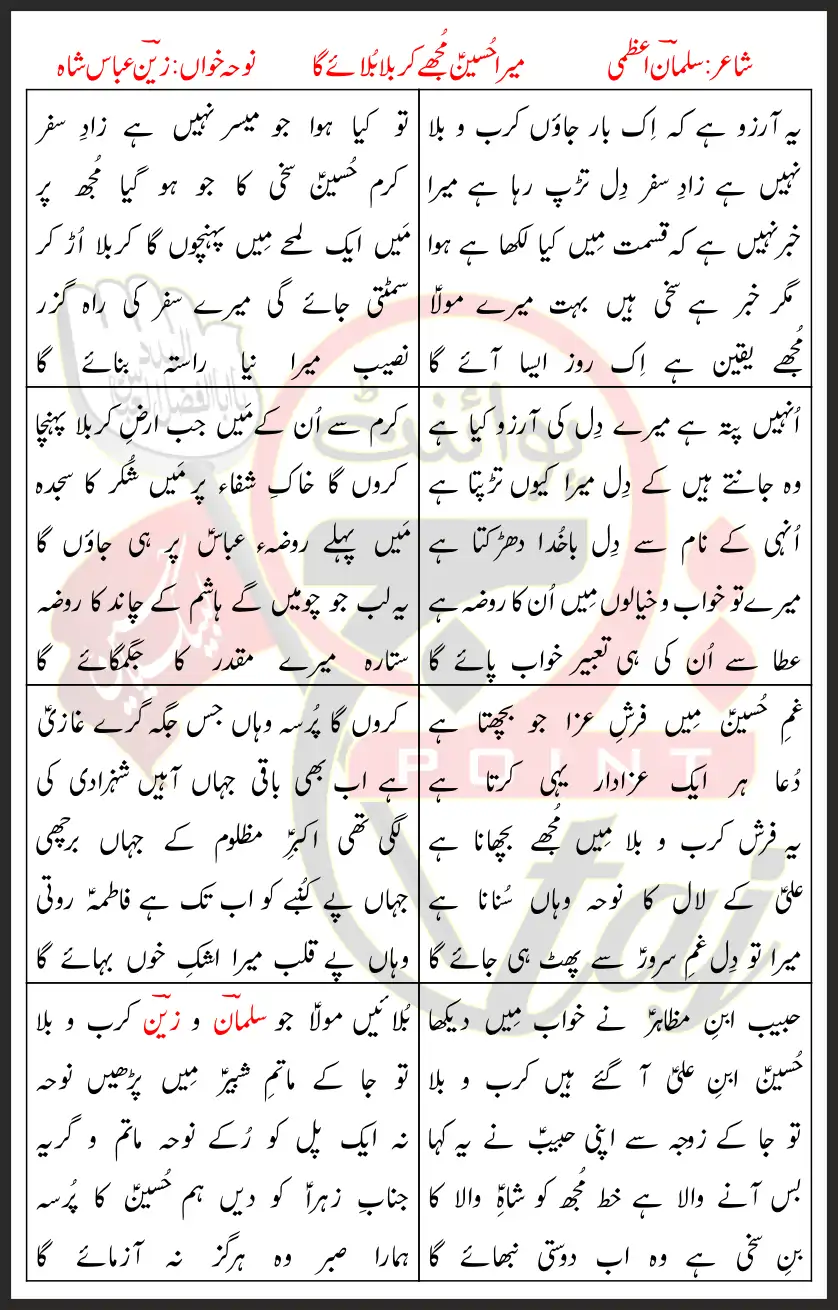 شاعر: سلمان اعظمی
میرا حُسینؑ مُجھے کربلا بُلائے گا
نوحہ خواں: زین عباس شاہ
یہ آرزو ہے کہ اِک بار جاؤں کرب و بلا
نہیں ہے زادِ سفر دِل تڑپ رہا ہے میرا
خبر نہیں ہے کہ قسمت مِیں کیا لکھا ہے ہوا
مگر خبر ہے سخی ہیں بہت میرے مولاؑ
مُجھے یقین ہے اِک روز ایسا آئے گا
تو کیا ہوا جو میسر نہیں ہے زادِ سفر
کرم حُسینؑ سخی کا جو ہو گیا مُجھ پر
مَیں ایک لمحے مِیں پہنچوں گا کربلا اُڑ کر
سمٹتی جائے گی میرے سفر کی راہ گزر
نصیب میرا نیا راستہ بنائے گا
اُنہیں پتہ ہے میرے دِل کی آرزو کیا ہے
وہ جانتے ہیں کے دِل میرا کیوں تڑپتا ہے
اُنہی کے نام سے دِل باخُدا دھڑکتا ہے
میرے تو خواب و خیالوں مِیں اُن کا روضہ ہے
عطا سے اُن کی ہی تعبیر خواب پائے گا
کرم سے اُن کے مَیں جب ارضِ کربلا پہنچا
کروں گا خاکِ شفاء پر مَیں شُکر کا سجدہ
مَیں پہلے روضہء عباسؑ پر ہی جاؤں گا
یہ لب جو چومیں گے ہاشم کے چاند کا روضہ
ستارہ میرے مقدر کا جگمگائے گا
غمِ حُسینؑ مِیں فرشِ عزا جو بچھتا ہے
دُعا ہر ایک عزادار یہی کرتا ہے
یہ فرش کرب و بلا مِیں مُجھے بچھانا ہے
علیؑ کے لال کا نوحہ وہاں سُنانا ہے
میرا تو دِل غمِ سرورؑ سے پھٹ ہی جائے گا
کروں گا پُرسہ وہاں جس جگہ گرے غازیؑ
ہے اب بھی باقی جہاں آہیں شہزادی کی
لگی تھی اکبرِؑ مظلوم کے جہاں برچھی
جہاں پے کُنبے کو اب تک ہے فاطمہؑ روتی
وہاں پے قلب میرا اشکِ خوں بہائے گا
حبیب ابنِ مظاہرؑ نے خواب مِیں دیکھا
حُسینؑ ابنِ علیؑ آ گئے ہیں کرب و بلا
تو جا کے زوجہ سے اپنی حبیبؑ نے یہ کہا
بس آنے والا ہے خط مُجھ کو شاہِؑ والا کا
بنِ سخی ہے وہ اب دوستی نبھائے گا
بُلائیں مولاؑ جو سلمان و زین کرب و بلا
تو جا کے ماتمِ شبیرؑ مِیں پڑھیں نوحہ
نہ ایک پل کو رُکے نوحہ ماتم و گریہ
جنابِ زہراؑ کو دیں ہم حُسینؑ کا پُرسہ
ہمارا صبر وہ ہرگز نہ آزمائے گا
پوائنٹ
POINT
taj